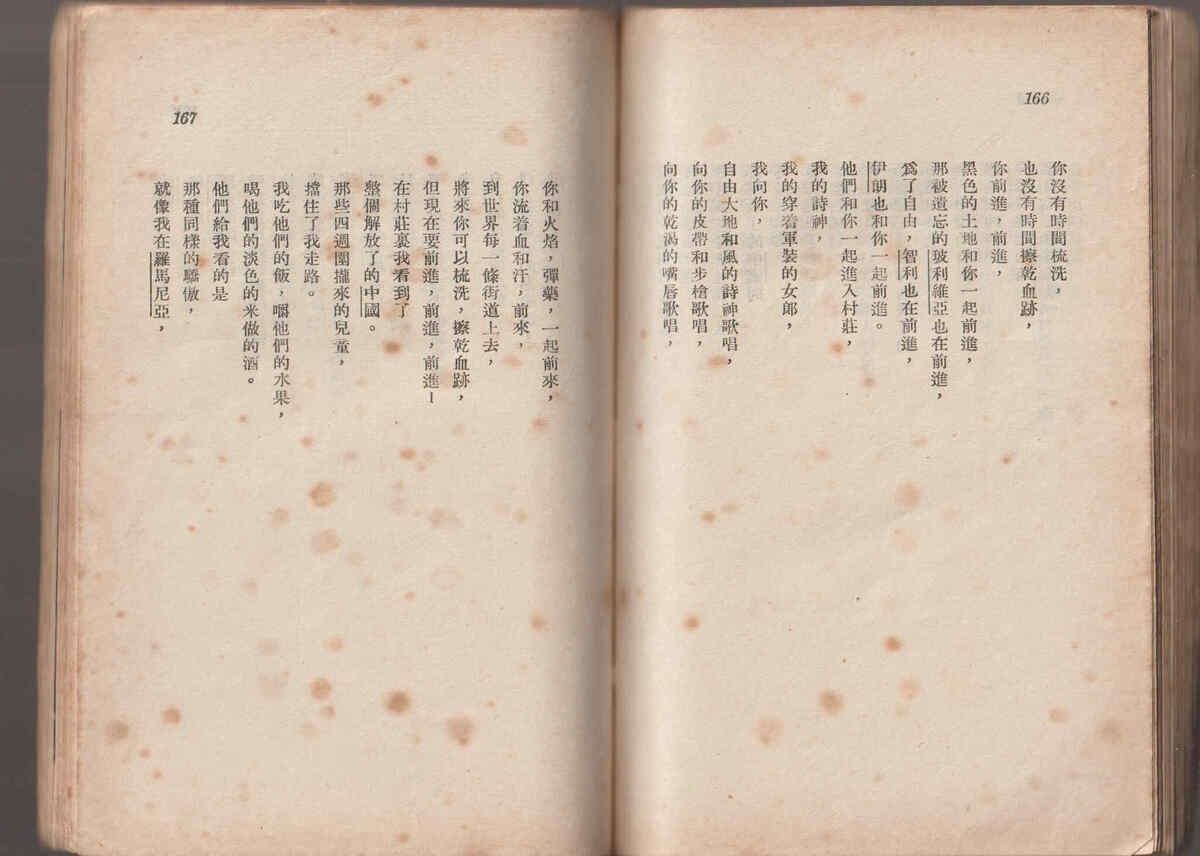 166
你沒有時間梳洗，
也沒有時間擦乾血跡，
你前進，前進，
黑色的土地和你一起前進，
那被遺忘的玻利維亞也在前進，
爲了自由，智利也在前進，
伊朗也和你一起前進。
他們和你一起進入村莊，
我的詩神，
我的穿着軍裝的女郎，
我向你，
自由大地和風的詩神歌唱，
向你的皮帶和步槍歌唱，
向你的乾渴的嘴唇歌唱，
167
你和火焰，彈藥，一起前來，
你流着血和汗，前來，
到世界每一條街道上去，
將來你可以梳洗，擦乾血跡，
但現在要前進，前進，前進！
在村莊裏我看到了
整個解放了的中國。
那些四週圍攏來的兒童，
擋住了我走路。
我吃他們的飯，嚼他們的水果，
喝他們的淡色的米做的酒。
他們給我看的是
那種同樣的驕傲，
就像我在羅馬尼亞，